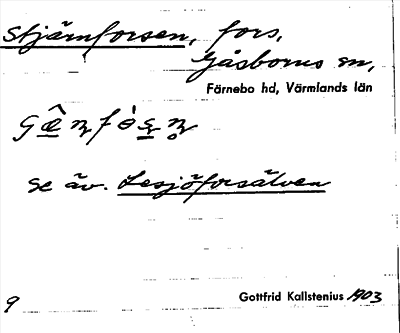 Stjärnforsen, fors,
Gåsborns sn,
Färnebo hd, Värmlands län
se äv. Lesjöforsälven
Gottfrid Kallstenius 1903
9